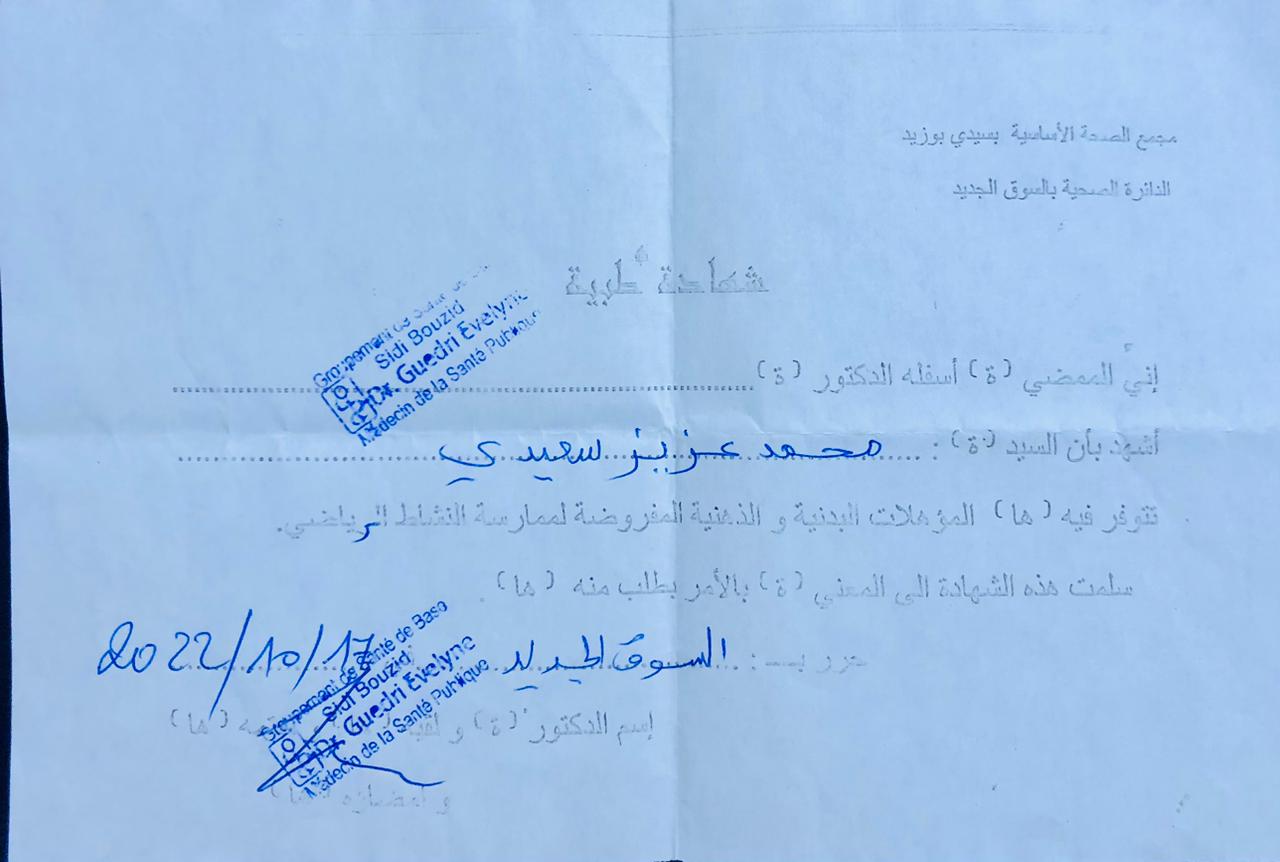 مجمع الصحة الأساسية بسيدي بوزيد
الدائرة الصحية بالسوق الجديد
شهادة طبية
Groupement de Santé de
Sidi Bouzid
Dr Guedri Evelyne
Médecin de la Santé Publique
إنّي الممضي (ة) أسفله الدكتور (ة)
أشهد بأن السيد (ة) : محمد عزيز سعيدي
تتوفر فيه (ها) المؤهلات البدنية و الذهنية المفروضة لممارسة النشاط الرياضي.
سلمت هذه الشهادة الى المعني (ة) بالأمر بطلب منه (ها) .
حرر بــ : السوق الجديد 2022/10/17
Groupement de Santé de Base
Sidi Bouzid
Dr Guedri Evelyne
Médecin de la Santé Publique
إسم الدكتور (ة) و لقبه (ها)
و إمضاؤه (ها)